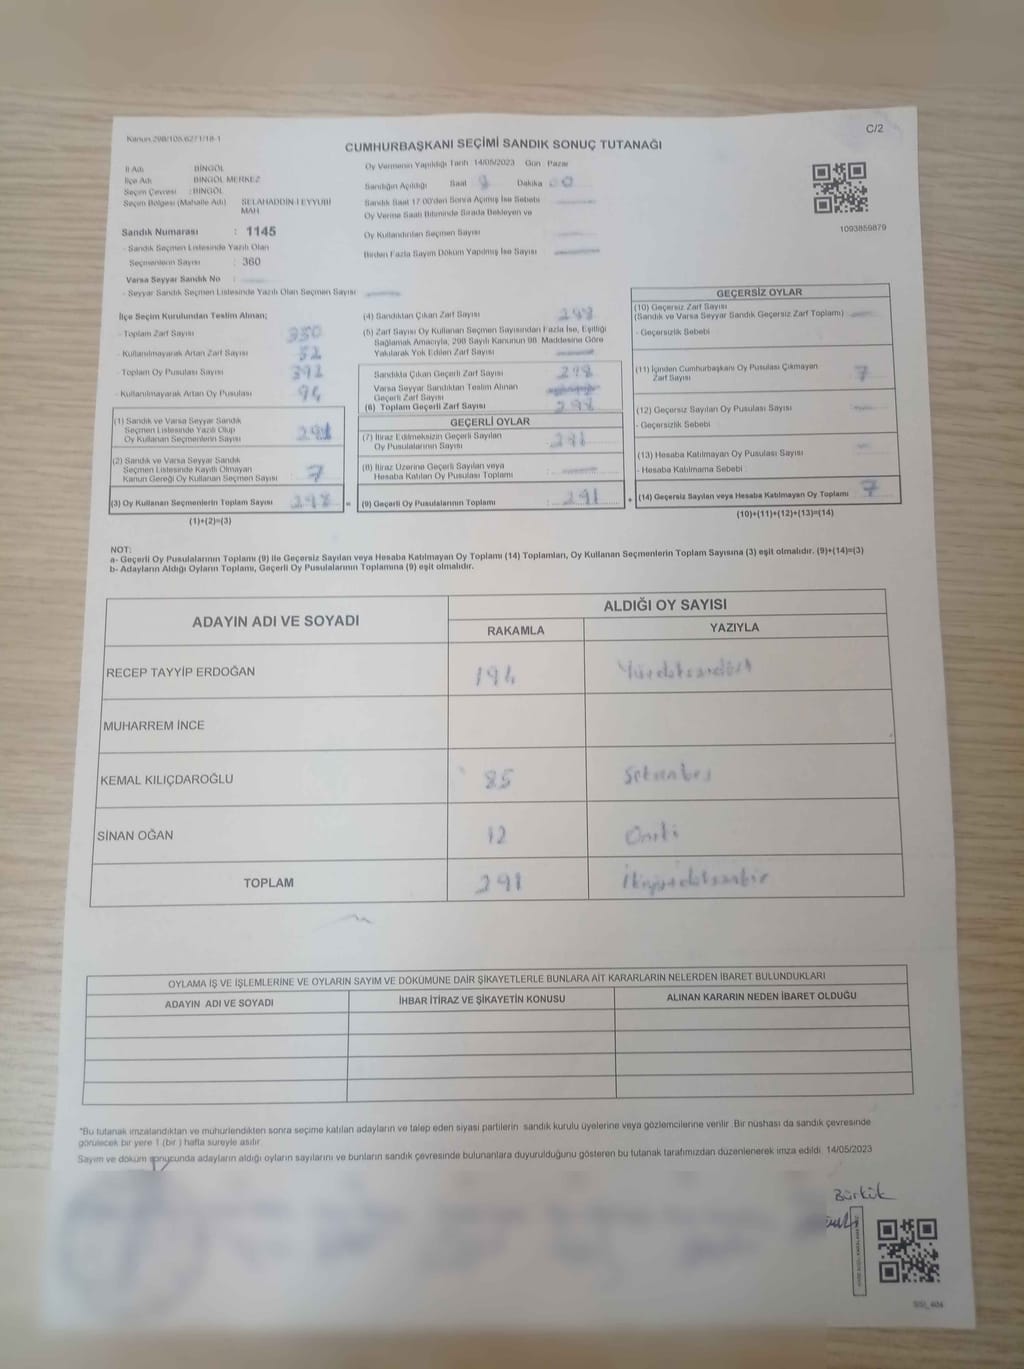 Kanun 298/105,6271/18-1
C/2
CUMHURBAŞKANI SEÇİMİ SANDIK SONUÇ TUTANAĞI
İl Adı : BİNGÖL
İlçe Adı : BİNGÖL MERKEZ
Seçim Çevresi : BİNGÖL
Seçim Bölgesi (Mahalle Adı) SELAHADDİN-İ EYYUBİ MAH
Sandık Numarası : 1145
- Sandık Seçmen Listesinde Yazılı Olan
Seçmenlerin Sayısı : 360
Varsa Seyyar Sandık No :
- Seyyar Sandık Seçmen Listesinde Yazılı Olan Seçmen Sayısı
Oy Vermenin Yapıldığı Tarih 14/05/2023 Gün Pazar
Sandığın Açıldığı Saat Dakika
Sandık Saat 17.00'den Sonra Açılmış İse Sebebi
Oy Verme Saati Bitiminde Sırada Bekleyen ve
Oy Kullandırılan Seçmen Sayısı
Birden Fazla Sayım Döküm Yapılmış İse Sayısı
1093859879
İlçe Seçim Kurulundan Teslim Alınan;
- Toplam Zarf Sayısı
- Kullanılmayarak Artan Zarf Sayısı
- Toplam Oy Pusulası Sayısı
- Kullanılmayarak Artan Oy Pusulası
(1) Sandık ve Varsa Seyyar Sandık
Seçmen Listesinde Yazılı Olup
Oy Kullanan Seçmenlerin Sayısı 291
(2) Sandık ve Varsa Seyyar Sandık
Seçmen Listesinde Kayıtlı Olmayan
Kanun Gereği Oy Kullanan Seçmen Sayısı 7
(3) Oy Kullanan Seçmenlerin Toplam Sayısı 298 =
(1)+(2)=(3)
(4) Sandıktan Çıkan Zarf Sayısı 298
(5) Zarf Sayısı Oy Kullanan Seçmen Sayısından Fazla İse, Eşitliği
Sağlamak Amacıyla, 298 Sayılı Kanunun 98. Maddesine Göre
Yakılarak Yok Edilen Zarf Sayısı
Sandıkta Çıkan Geçerli Zarf Sayısı 298
Varsa Seyyar Sandıktan Teslim Alınan
Geçerli Zarf Sayısı
(6) Toplam Geçerli Zarf Sayısı 298
GEÇERLİ OYLAR
(7) İtiraz Edilmeksizin Geçerli Sayılan
Oy Pusulalarının Sayısı 291
(8) İtiraz Üzerine Geçerli Sayılan veya
Hesaba Katılan Oy Pusulası Toplamı
(9) Geçerli Oy Pusulalarının Toplamı : 291 +
GEÇERSİZ OYLAR
(10) Geçersiz Zarf Sayısı
(Sandık ve Varsa Seyyar Sandık Geçersiz Zarf Toplamı)
- Geçersizlik Sebebi
(11) İçinden Cumhurbaşkanı Oy Pusulası Çıkmayan
Zarf Sayısı 7
(12) Geçersiz Sayılan Oy Pusulası Sayısı
- Geçersizlik Sebebi
(13) Hesaba Katılmayan Oy Pusulası Sayısı
- Hesaba Katılmama Sebebi
(14) Geçersiz Sayılan veya Hesaba Katılmayan Oy Toplamı 7
(10)+(11)+(12)+(13)=(14)
NOT:
a- Geçerli Oy Pusulalarının Toplamı (9) ile Geçersiz Sayılan veya Hesaba Katılmayan Oy Toplamı (14) Toplamları, Oy Kullanan Seçmenlerin Toplam Sayısına (3) eşit olmalıdır. (9)+(14)=(3)
b- Adayların Aldığı Oyların Toplamı, Geçerli Oy Pusulalarının Toplamına (9) eşit olmalıdır.
ADAYIN ADI VE SOYADI
ALDIĞI OY SAYISI
RAKAMLA YAZIYLA
RECEP TAYYİP ERDOĞAN 194 Yüzdoksandört
MUHARREM İNCE
KEMAL KILIÇDAROĞLU 85 Seksenbeş
SİNAN OĞAN 12 Oniki
TOPLAM 291 İkiyüzdoksanbir
OYLAMA İŞ VE İŞLEMLERİNE VE OYLARIN SAYIM VE DÖKÜMÜNE DAİR ŞİKAYETLERLE BUNLARA AİT KARARLARIN NELERDEN İBARET BULUNDUKLARI
ADAYIN ADI VE SOYADI İHBAR İTİRAZ VE ŞİKAYETİN KONUSU ALINAN KARARIN NEDEN İBARET OLDUĞU
*Bu tutanak imzalandıktan ve mühürlendikten sonra seçime katılan adayların ve talep eden siyasi partilerin sandık kurulu üyelerine veya gözlemcilerine verilir. Bir nüshası da sandık çevresinde
görülecek bir yere 1 (bir) hafta süreyle asılır.
Sayım ve döküm sonucunda adayların aldığı oyların sayılarını ve bunların sandık çevresinde bulunanlara duyurulduğunu gösteren bu tutanak tarafımızdan düzenlenerek imza edildi. 14/05/2023